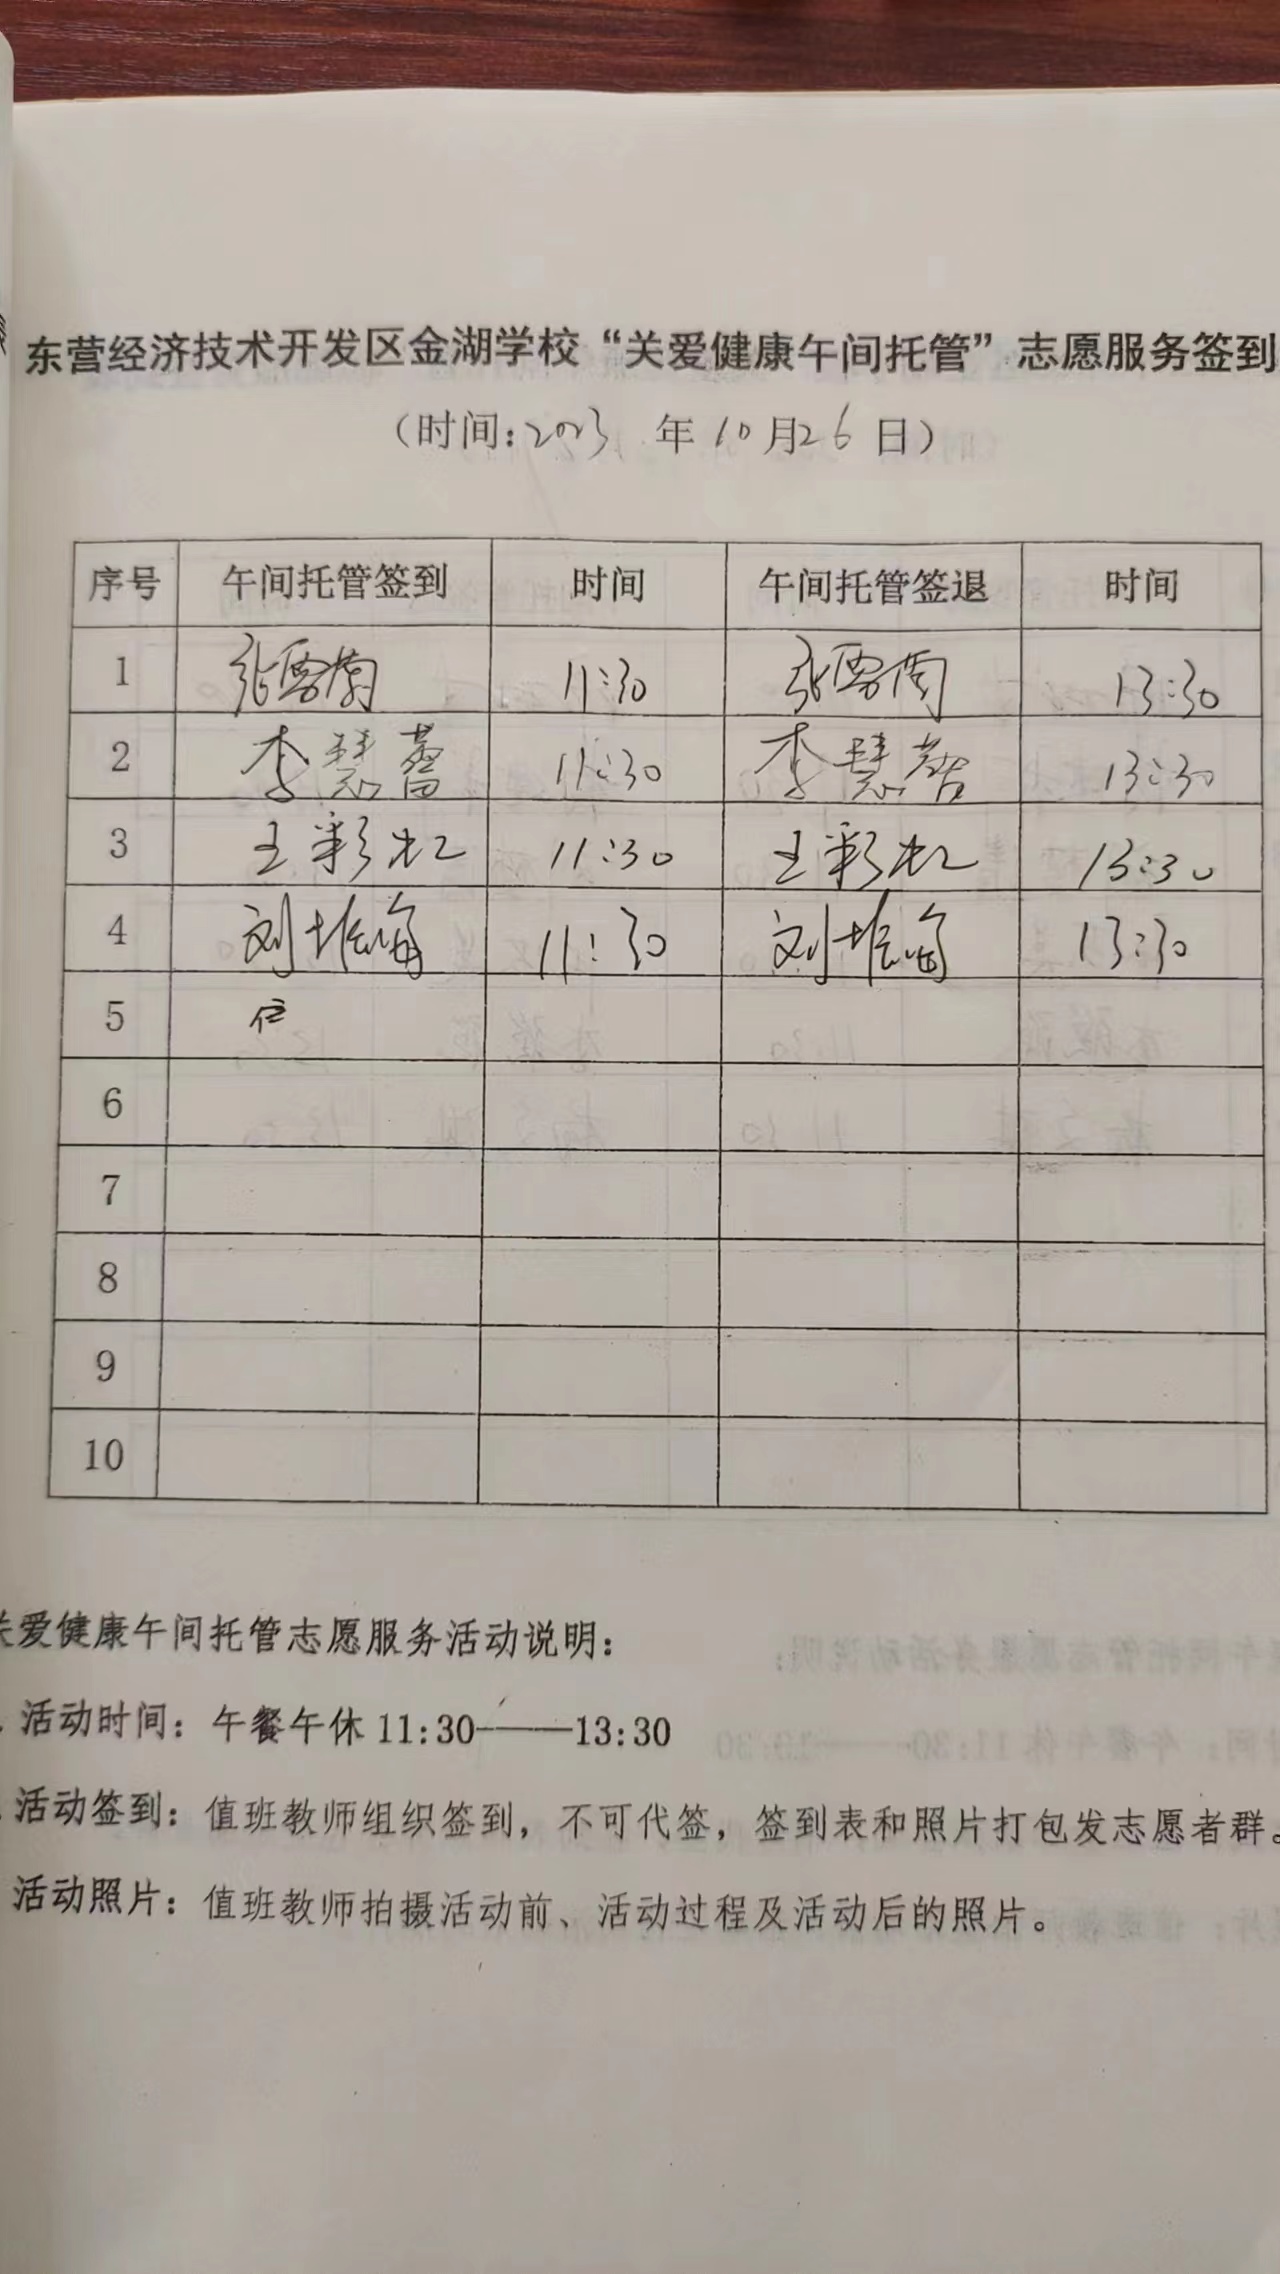 东营经济技术开发区金湖学校“关爱健康午间托管”志愿服务签到
（时间：2023 年 10 月 26 日）
序号 午间托管签到 时间 午间托管签退 时间
1 张雪 11:30 张雪 13:30
2 李慧蕾 11:30 李慧 13:30
3 王彩虹 11:30 王彩虹 13:30
4 刘 11:30 刘 13:30
5
6
7
8
9
10
关爱健康午间托管志愿服务活动说明：
活动时间：午餐午休 11:30——13:30
活动签到：值班教师组织签到，不可代签，签到表和照片打包发志愿者群。
活动照片：值班教师拍摄活动前、活动过程及活动后的照片。